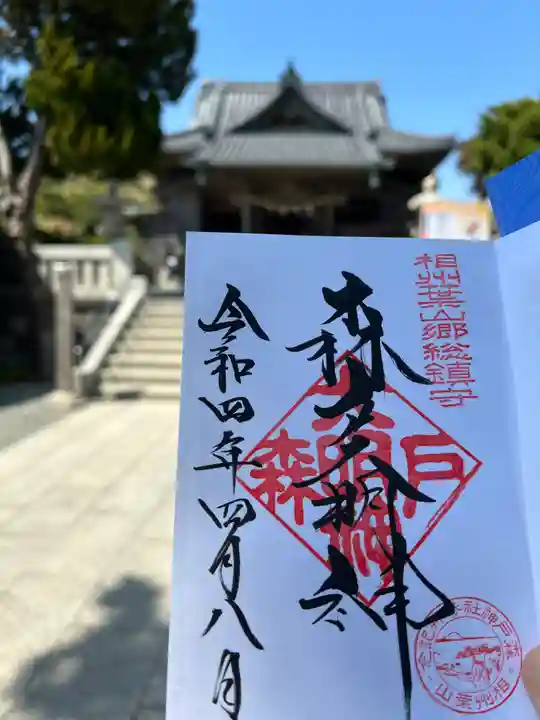 相州葉山郷総鎮守
森戸大明神
森戸大明神
令和四年四月八日
森戸神社参拝記念
相州葉山